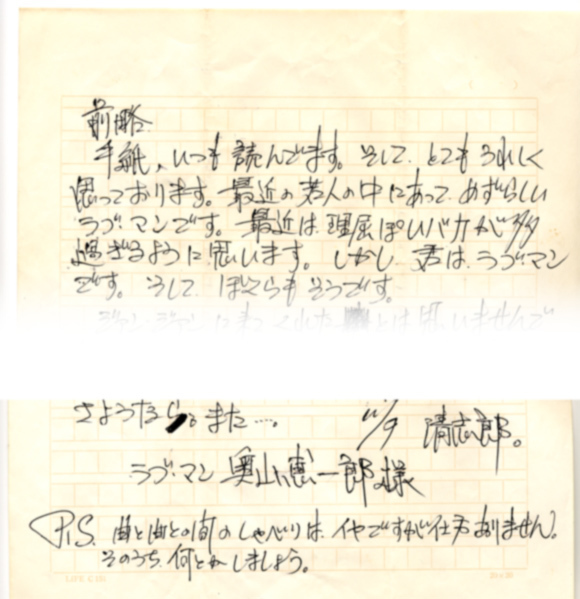 前略
手紙、いつも読んでます。そして、とてもうれしく
思っております。最近の若人の中にあって、めずらしい
ラブ・マンです。最近は理屈ぽいバカが多
過ぎるように思います。しかし、君は、ラブ・マン
です。そして、ぼくらもそうです。
とは思いませんで
さようなら。また…。 11/9 清志郎。
ラブ・マン 奥山恵一郎様
P.S. 曲と曲との間のしゃべりは、イヤですが仕方ありません。
そのうち、何とかしましょう。
LIFE C
20×20